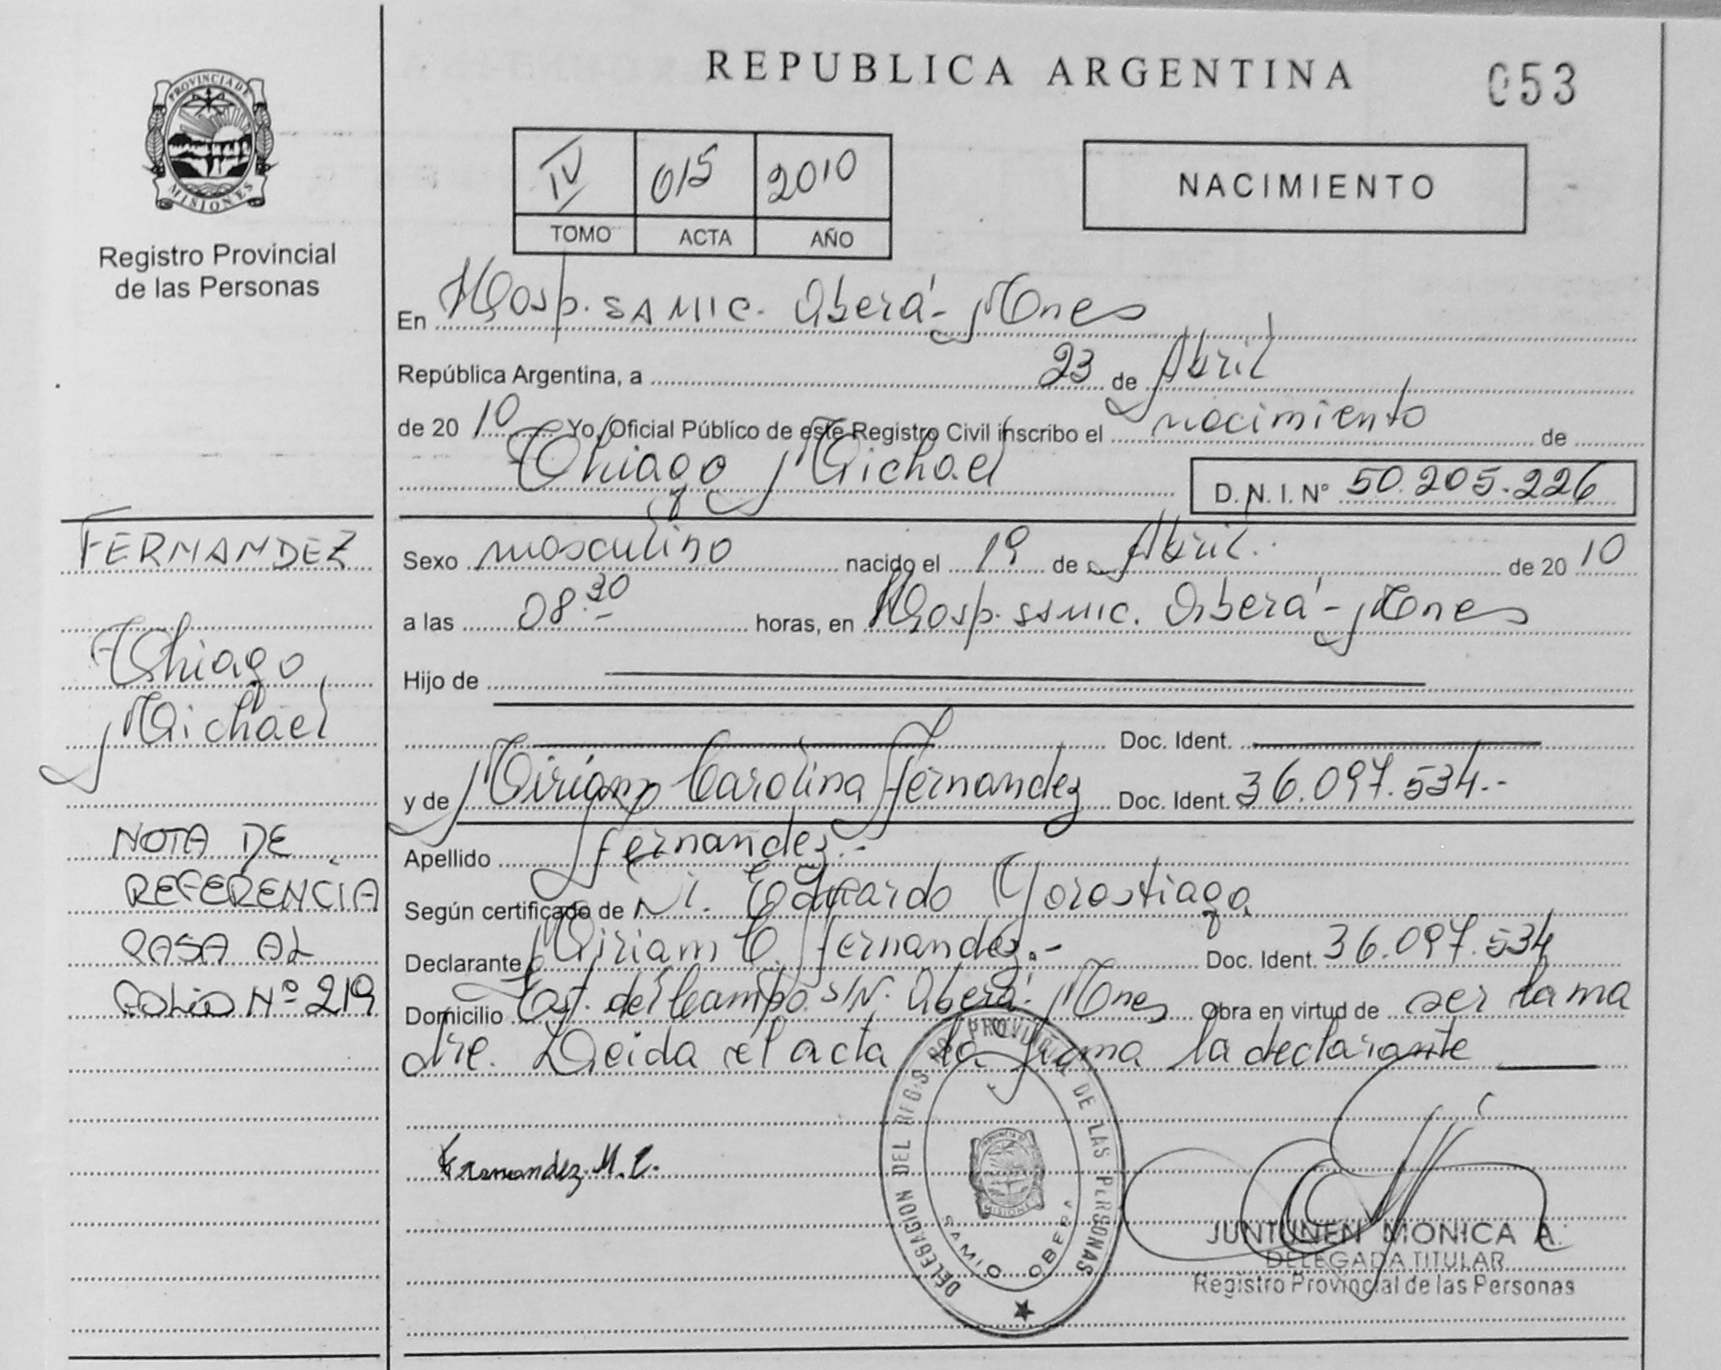 PROVINCIA DE
MISIONES
Registro Provincial
de las Personas
REPUBLICA ARGENTINA
053
IV 015 2010
TOMO ACTA AÑO
NACIMIENTO
En Hosp. SAMIC. Oberá - Mnes
República Argentina, a 23 de Abril
de 2010 Yo, Oficial Público de este Registro Civil inscribo el nacimiento de
Thiago Michael
D. N. I. N° 50.205.226
FERNANDEZ
Thiago
Michael
NOTA DE
REFERENCIA
PASA AL
FOLIO Nº 219
Sexo masculino nacido el 19 de Abril. de 2010
a las 08 30 horas, en Hosp. SAMIC. Oberá - Mnes
Hijo de
Doc. Ident.
y de Miriam Carolina Fernandez Doc. Ident. 36.097.534.-
Apellido Fernandez.-
Según certificado de Eduardo Gorostiaga
Declarante Miriam C. Fernandez.- Doc. Ident. 36.097.534
Domicilio del Campo S/N. Oberá - Mnes Obra en virtud de ser la ma
dre. Leida el acta la firma la declarante
Fernandez M. C.
DELEGACION DEL REG. PROVINCIAL DE LAS PERSONAS
PROVINCIA DE
MISIONES
SAMIC OBERA
JUNTUNEN MONICA A.
DELEGADA TITULAR
Registro Provincial de las Personas